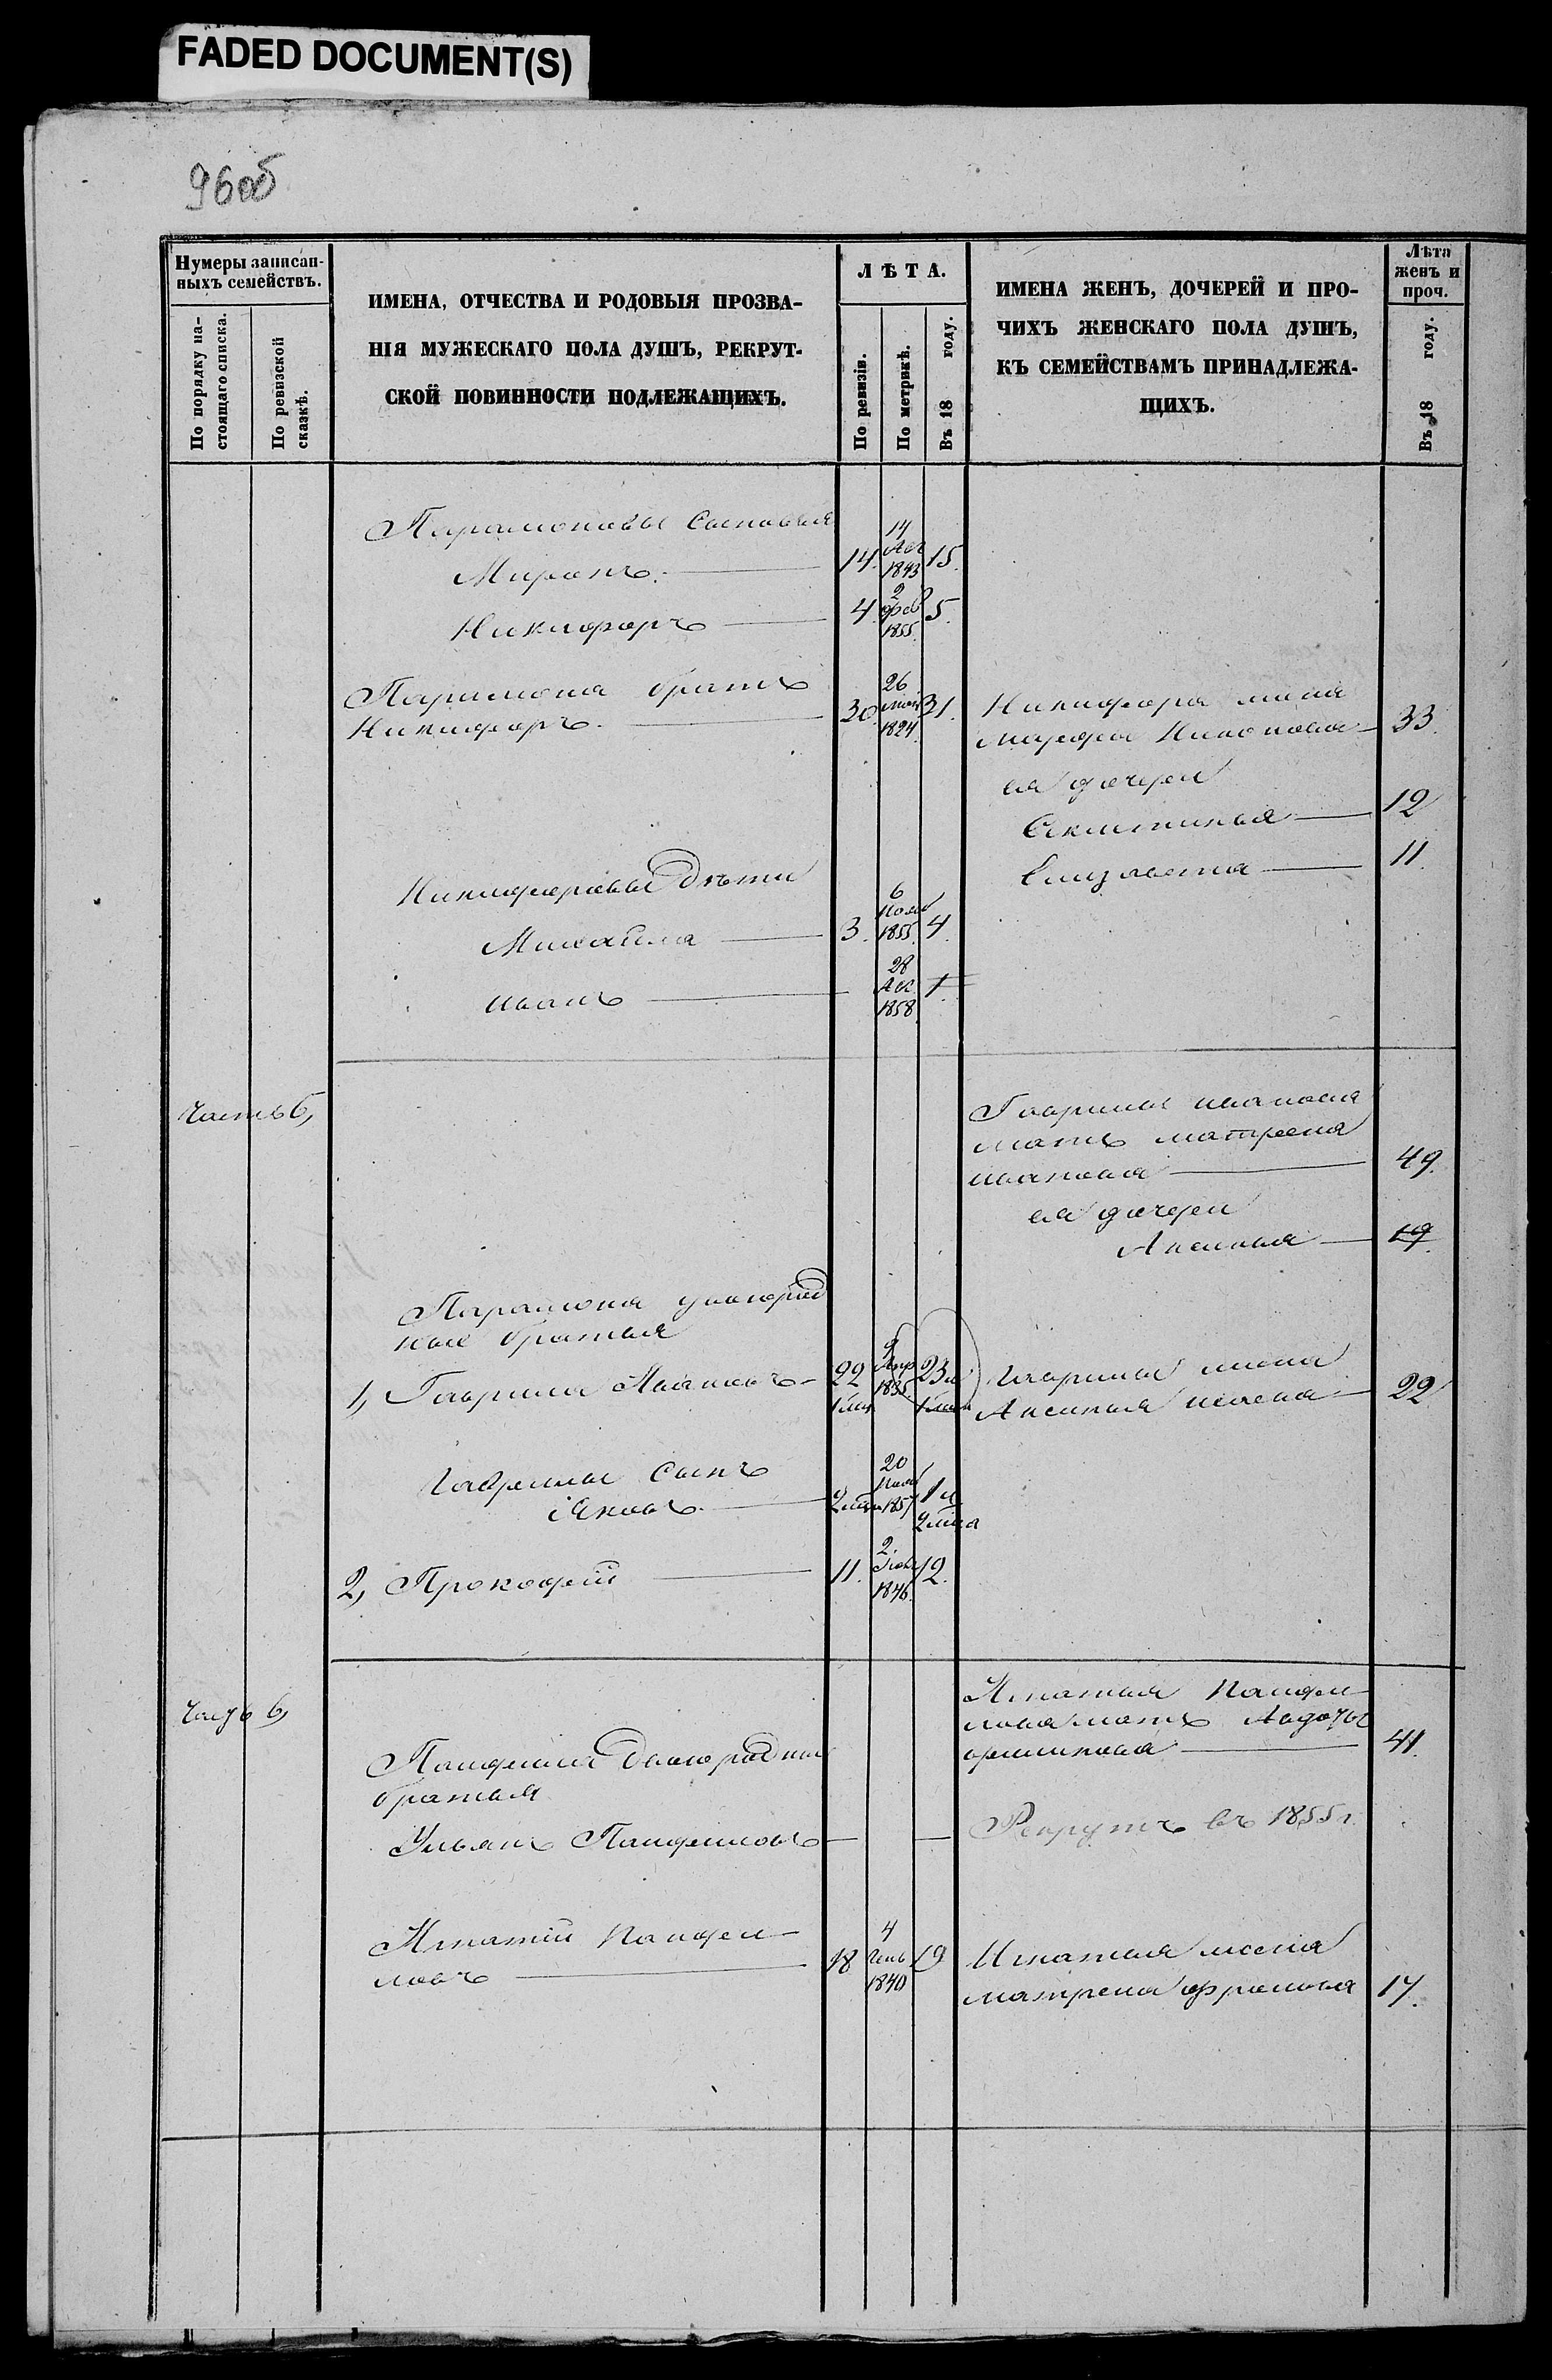 FADED DOCUMENT(S)
96об
Нумеры записан-
ныхъ семействъ.
По порядку на-
стоящаго списка.
По ревизской
сказкѣ.
ИМЕНА, ОТЧЕСТВА И РОДОВЫЯ ПРОЗВА-
НІЯ МУЖЕСКАГО ПОЛА ДУШЪ, РЕКРУТ-
СКОЙ ПОВИННОСТИ ПОДЛЕЖАЩИХЪ.
ЛѢТА.
По ревизіи.
По метрикѣ.
Въ 18 году.
ИМЕНА ЖЕНЪ, ДОЧЕРЕЙ И ПРО-
ЧИХЪ ЖЕНСКАГО ПОЛА ДУШЪ,
КЪ СЕМЕЙСТВАМЪ ПРИНАДЛЕЖА-
ЩИХЪ.
Лѣта
женъ и
проч.
Въ 18 году.
Парамоновы сыновья
14
Миронъ. 14. 1843 15.
2
Никифоръ 4 фев 5.
1855.
Парамона братъ
26
Никифоръ. 30 мая 31.
1824.
Никифора жена
Марфа Никонова 33.
ея дочери
12
Елизавета 11
Никифоровы дѣти
6
Нояб
Михайла 3. 1855. 4.
28
иванъ 1
1858.
Часть 6,
Гаврилы иванова
мать матрена
иванова 49.
ея дочери
Аксинья 19.
Парамона двоюрод
ные братья
9
1, Гаврила Ивановъ 22 Апр 23
1835.
Гаврилы жена
Аксинья 22
Гаврилы сынъ
20
Нояб
Яковъ. 2 1857 1
2
2.
2, Прокофій 11. 12.
1846.
Часть 6,
Игнатья Панфи
лова мать Авдотья
41.
Панфила двоюродные
братья
Ульянъ Панфиловъ
Рекрутъ въ 1855 г.
Игнатій Панфи
4
ловъ 18 Генв 19
1840
Игнатья жена
матрена 17.